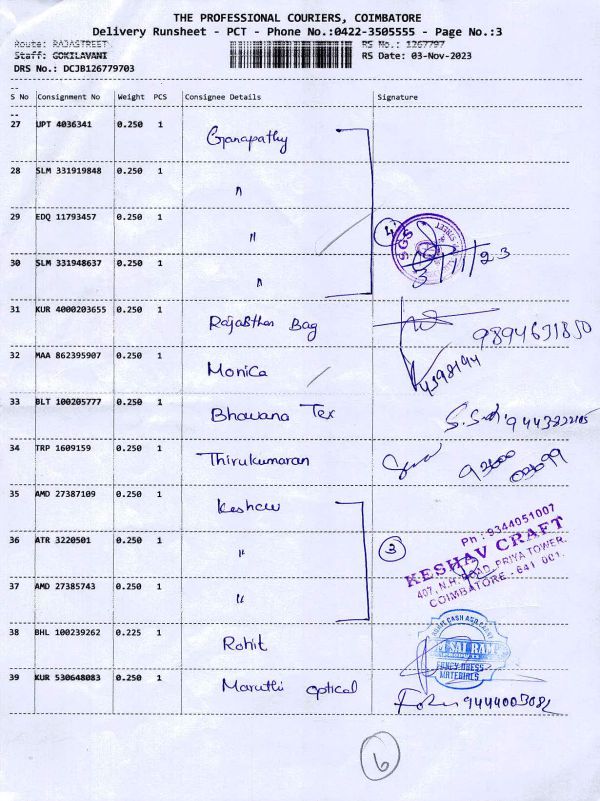 THE PROFESSIONAL COURIERS, COIMBATORE
Delivery Runsheet - PCT - Phone No.:0422-3505555 - Page No.:3
Route: RAJASTREET RS No.: 1267797
Staff: GOKILAVANI RS Date: 03-Nov-2023
DRS No.: DCJB126779703
--
S No Consignment No Weight PCS Consignee Details Signature
--
27 UPT 4036341 0.250 1 Ganapathy
28 SLM 331919848 0.250 1 "
29 EDQ 11793457 0.250 1 " 4 SGS
30 SLM 331948637 0.250 1 " 3/11/23
31 KUR 4000203655 0.250 1 Rajasthan Bag 9894631850
32 MAA 862395907 0.250 1 Monica
33 BLT 100205777 0.250 1 Bhavana Tex
34 TRP 1609159 0.250 1 Thirukumaran
35 AMD 27387109 0.250 1 Keshav
36 ATR 3220501 0.250 1 " 3 Ph : 9344051007
KESHAV CRAFT
407, N.H. ROAD, PRIYA TOWER,
COIMBATORE - 641 001.
37 AMD 27385743 0.250 1 "
38 BHL 100239262 0.225 1 Rohit SAI RAM
FANCY DRESS
MATERIALS
39 KUR 530648083 0.250 1 Maruthi optical
6